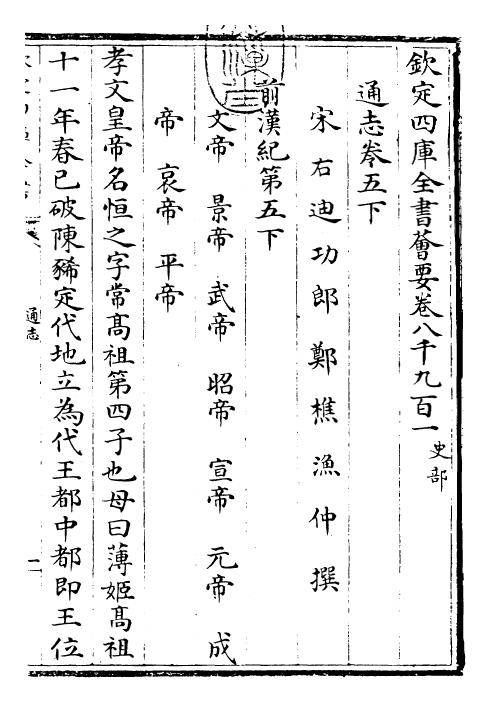 欽定四庫全書薈要卷八千九百一 史部
通志卷五下
宋右迪功郎鄭樵漁仲撰
前漢紀第五下
文帝 景帝 武帝 昭帝 宣帝 元帝 成
帝 哀帝 平帝
孝文皇帝名恒之字常高祖第四子也母曰薄姬高祖
十一年春已破陳豨定代地立為代王都中都即王位
通志